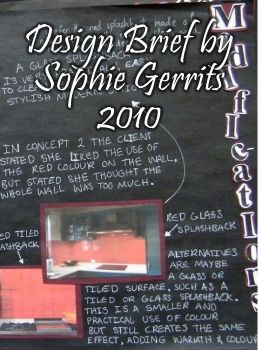 Design Brief by
Sophie Gerrits
2010
Modifications
THE red SPLASHBACK made s
A GLASS SPL
STYLISH MODERN
IN CONCEPT 2 THE CLIENT
STATED SHE LIKED THE USE OF
THE RED COLOUR ON THE WALL,
BUT STATED SHE THOUGHT THE
WHOLE WALL WAS TOO MUCH.
RED GLASS
SPLASHBACK
RED TILED
SPLASHBACK
ALTERNATIVES
ARE MAYBE
A GLASS OR
TILED SURFACE, SUCH AS A
TILED OR GLASS SPLASHBACK.
THIS IS A SMALLER AND
PRACTICAL USE OF COLOUR
BUT STILL CREATES THE SAME
EFFECT, ADDING WARMTH & COLOUR